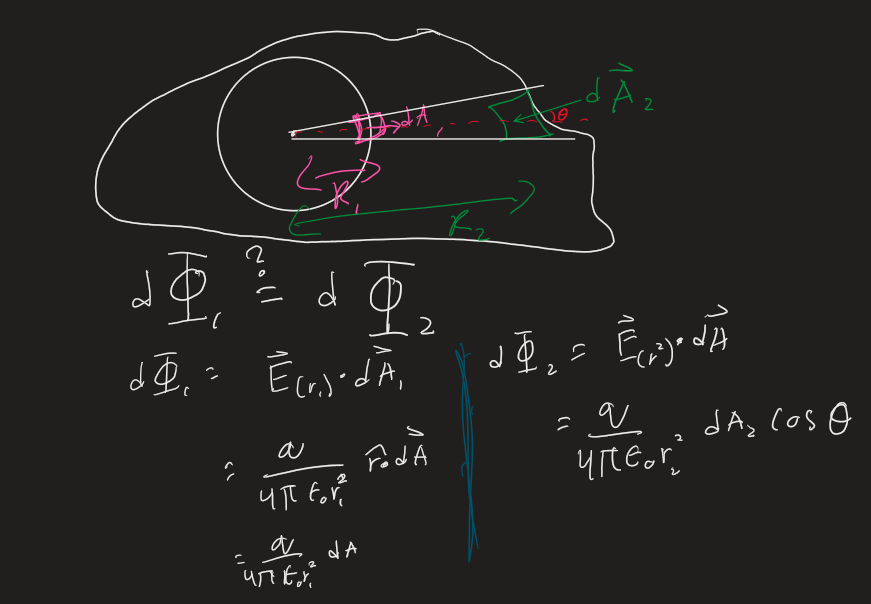 dA₁
dA⃗₂
θ
R₁
R₂
dΦ₁ ≟ dΦ₂
dΦ₁ = E⃗(r₁)·dA⃗₁
= q/4πε₀r₁² r̂·dA⃗
= q/4πε₀r₁² dA
dΦ₂ = E⃗(r²)·dA⃗
= q/4πε₀r₂² dA₂ cos θ